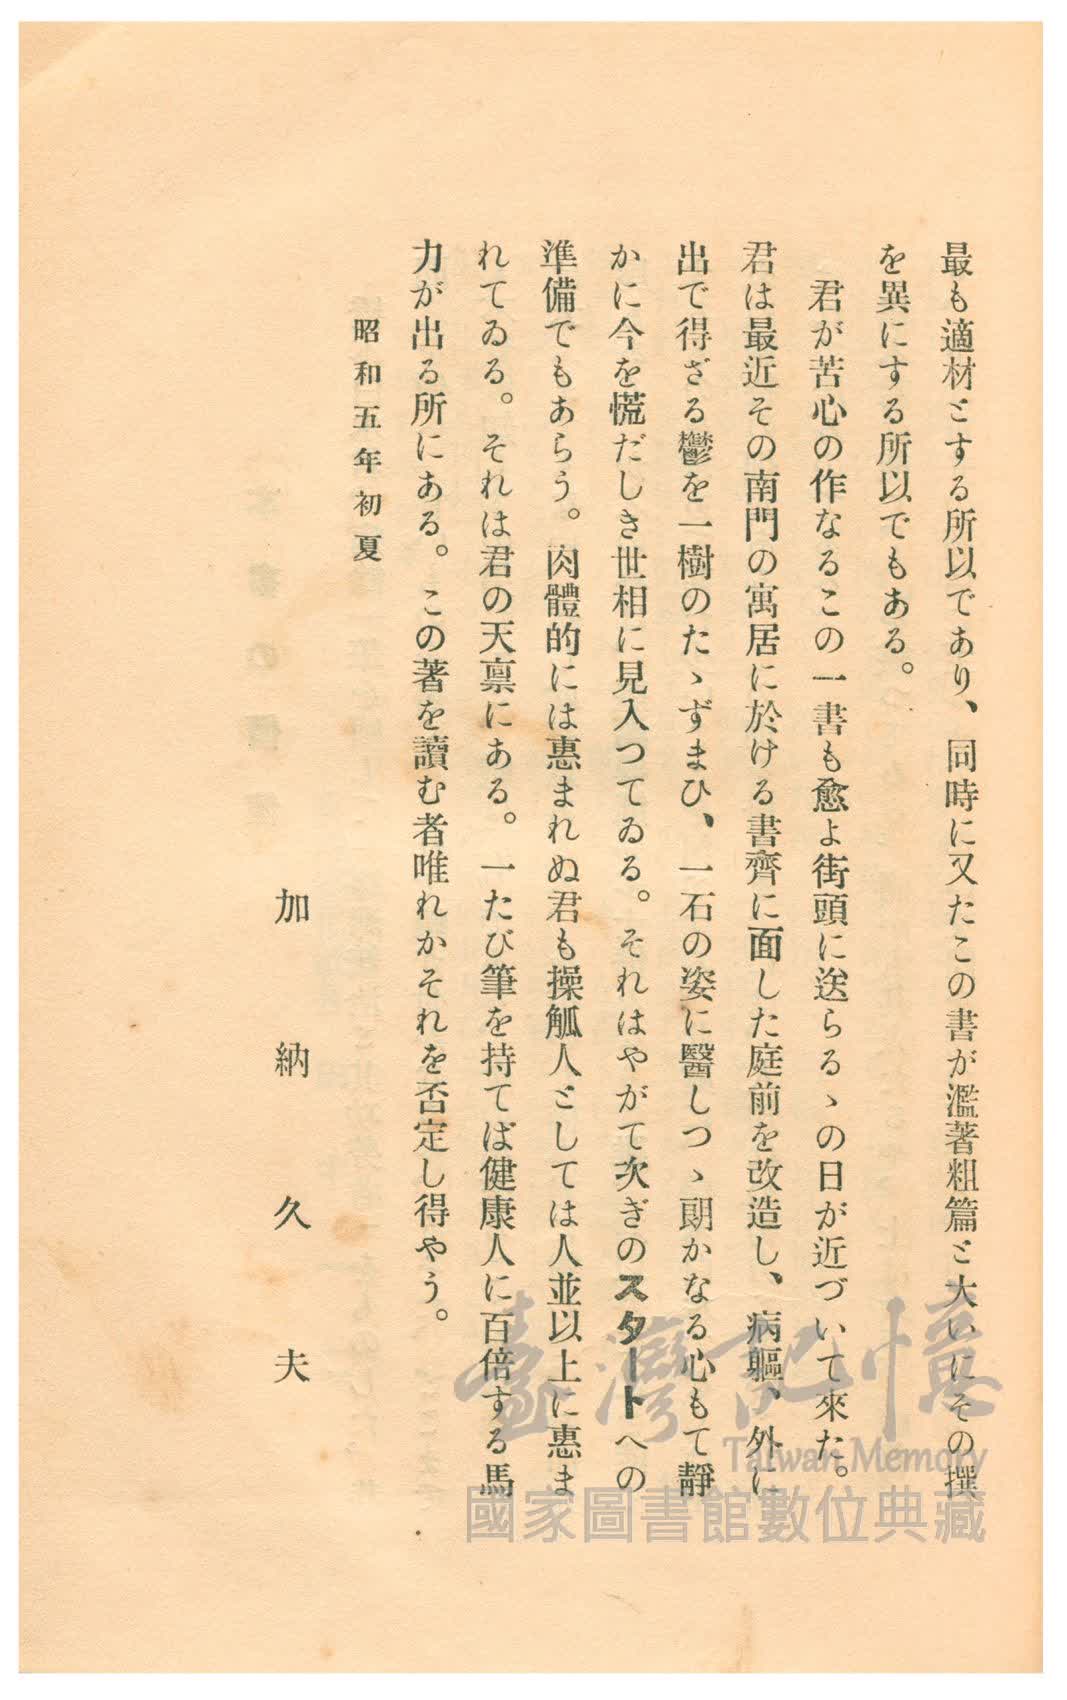 最も適材とする所以であり、同時に又たこの書が濫著粗篇と大いにその撰
を異にする所以でもある。
君が苦心の作なるこの一書も愈よ街頭に送らるゝの日が近づいて來た。
君は最近その南門の寓居に於ける書齊に面した庭前を改造し、病軀、外に
出で得ざる鬱を一樹のたゝずまひ、一石の姿に醫しつゝ朗かなる心もて靜
かに今を慌だしき世相に見入つてゐる。それはやがて次ぎのスタートへの
準備でもあらう。肉體的には惠まれぬ君も操觚人としては人並以上に惠ま
れてゐる。それは君の天禀にある。一たび筆を持てば健康人に百倍する馬
力が出る所にある。この著を讀む者唯れかそれを否定し得やう。
昭和五年初夏
加納久夫
臺灣記憶
Taiwan Memory
國家圖書館數位典藏